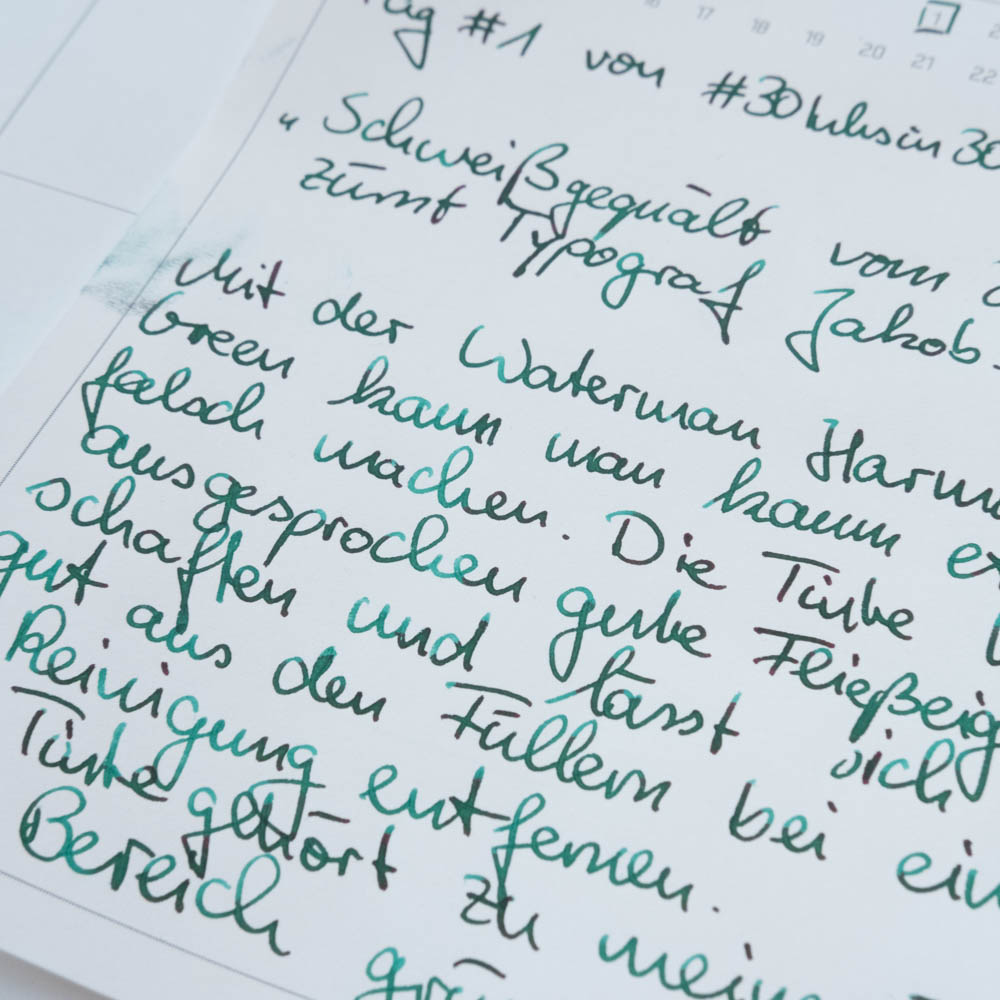 16 17 18 19 20 21 22
1 2
Tag #1 von #30Inks in 30
"Schweißgequält vom
zürnt Typograf Jakob
Mit der Waterman Harm
Green kann man kaum et
falsch machen. Die Tinte
ausgesprochen gute Fließeig
schaften und lässt sich
gut aus den Füllern bei ein
Reinigung entfernen.
Tinte gehört zu mein
Bereich grü